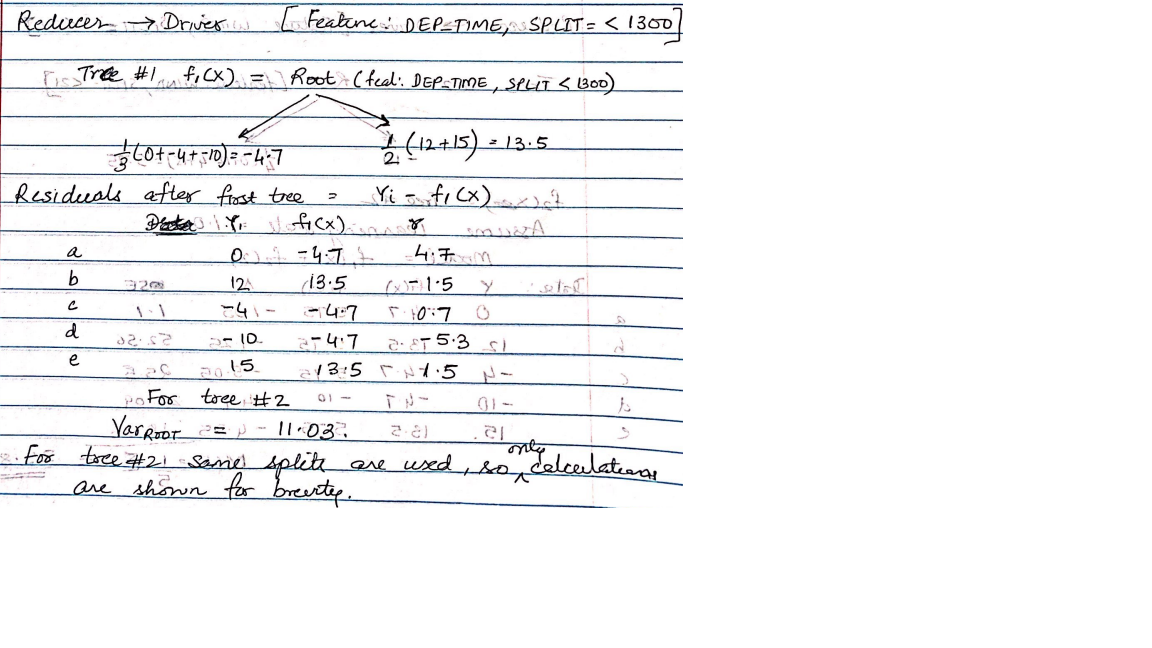 Reducer → Driver [Feature: DEP_TIME, SPLIT = < 1300]
Tree #1 f₁(x) = Root (feat: DEP_TIME, SPLIT < 1300)
1/3 (0+-4+-10) = -4.7 1/2 (12+15) = 13.5
Residuals after first tree = Yi - f₁(x)
Yi f₁(x) r
a 0 -4.7 4.7
b 12 13.5 -1.5
c -4 -4.7 0.7
d -10 -4.7 -5.3
e 15 13.5 1.5
For tree #2
Var ROOT = 11.03
For tree #2 same splits are used, so only calculations
are shown for brevity.